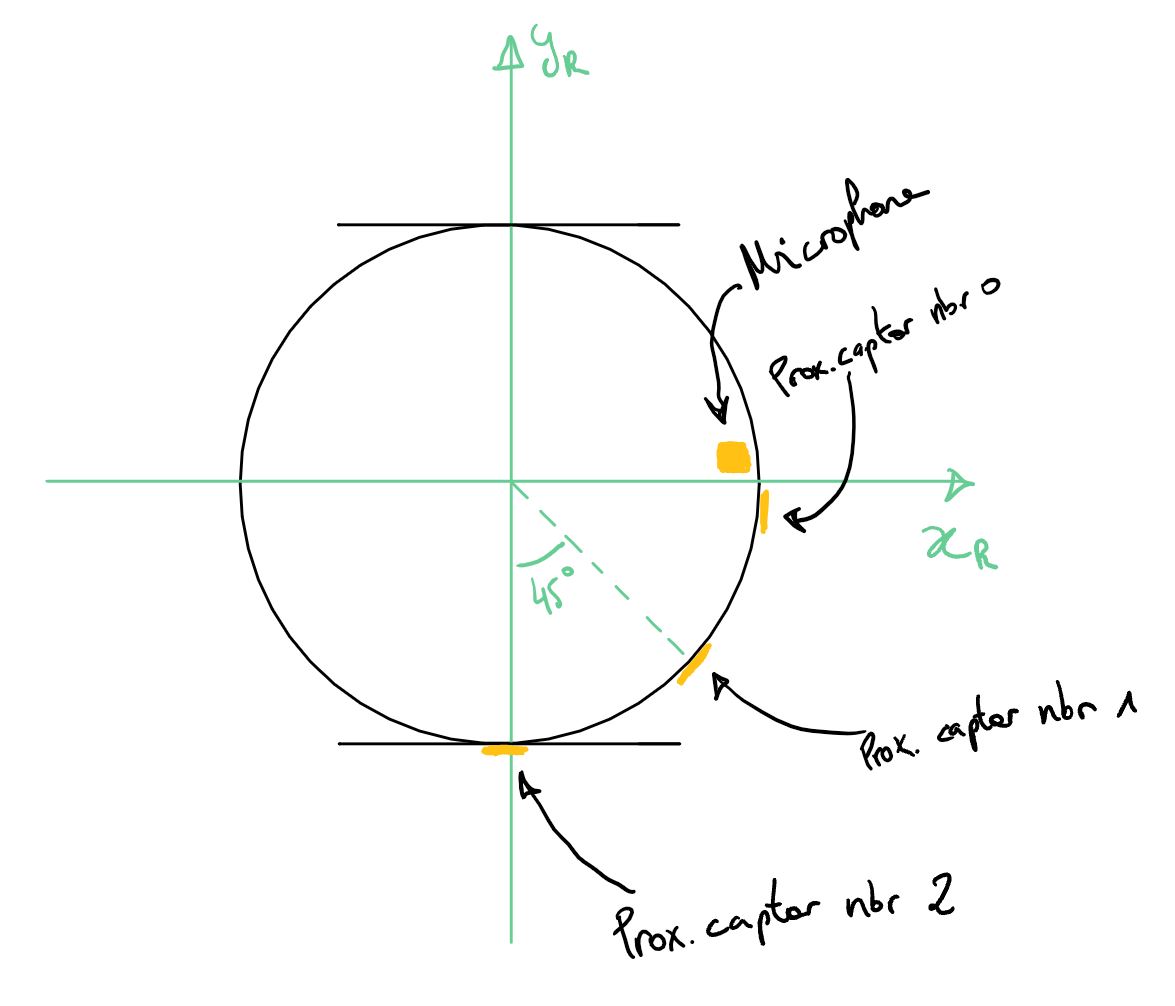 yR
Microphone
Prox. captor nbr 0
xR
45°
Prox. captor nbr 1
Prox. captor nbr 2